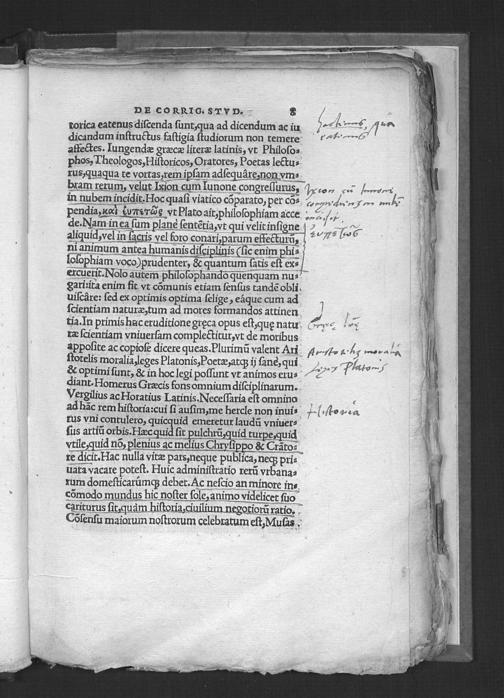 DE CORRIG. STVD. 8
torica eatenus discenda sunt, qua ad dicendum ac iu
dicandum instructus fastigia studiorum non temere
affectes. Iungendæ græcæ literæ latinis, vt Philoso-
phos, Theologos, Historicos, Oratores, Poetas lectu-
rus, quaqua te vortas, rem ipsam adsequâre, non vm-
bram rerum, velut Ixion cum Iunone congressurus,
in nubem incidit. Hoc quasi viatico cōparato, per cō-
pendia, καὶ ἐυπετῶς vt Plato ait, philosophiam acce
de. Nam in ea sum planè sentētia, vt qui velit insigne
aliquid, vel in sacris vel foro conari, parum effecturū,
ni animum antea humanis disciplinis (sic enim phi-
losophiam voco) prudenter, & quantum satis est ex-
ercuerit. Nolo autem philosophando quenquam nu-
gari: ita enim fit vt cōmunis etiam sensus tandē obli
uiscâre: sed ex optimis optima selige, eáque cum ad
scientiam naturæ, tum ad mores formandos attinen
tia. In primis hæc eruditione gręca opus est, quę natu
ræ scientiam vniuersam complectitur, vt de moribus
apposite ac copiose dicere queas. Plurimū valent Ari
stotelis moralia, leges Platonis, Poetæ, atq; ij sanè, qui
& optimi sunt, & in hoc legi possunt vt animos eru-
diant. Homerus Græcis fons omnium disciplinarum.
Vergilius ac Horatius Latinis. Necessaria est omnino
ad hāc rem historia: cui si ausim, me hercle non inui-
tus vni contulero, quicquid emeretur laudū vniuer-
sus artiū orbis. Hæc quid sit pulchrū, quid turpe, quid
vtile, quid nō, plenius ac melius Chrysippo & Crāto-
re dicit. Hac nulla vitæ pars, neque publica, neq; pri-
uata vacare potest. Huic administratio rerū vrbana-
rum domesticarumq; debet. Ac nescio an minore in-
cōmodo mundus hic noster sole, animo videlicet suo
cariturus sit, quàm historia, ciuilium negotiorū ratio.
Cōsensu maiorum nostrorum celebratum est, Musas
Ixion cū Iunone
incidit
ἐυπετῶς
Aristotelis moralia
leges Platonis
Historia